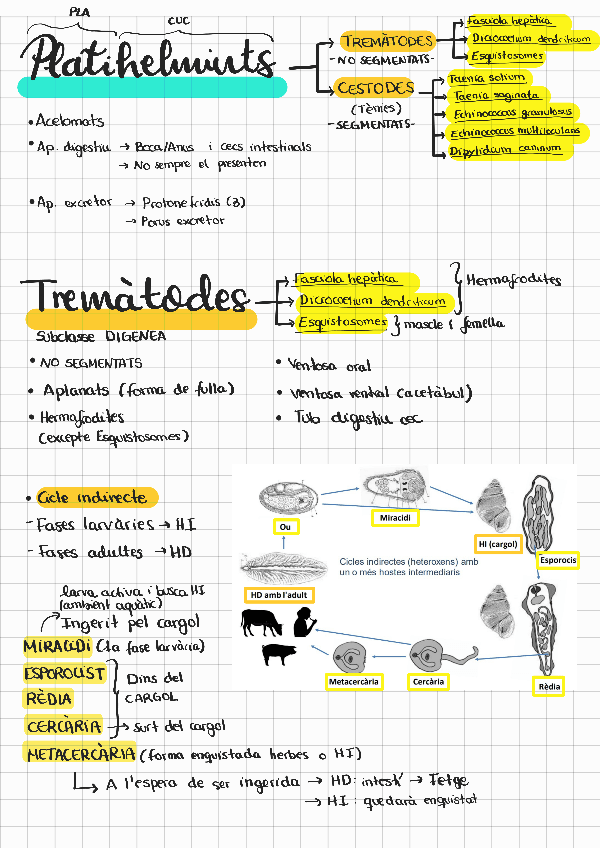 PLA
CUC
Platihelmints
TREMÀTODES
-NO SEGMENTATS-
Fasciola hepàtica
Dicrocoelium dendriticum
Esquistosomes
CESTODES
(Tènies)
-SEGMENTATS-
Taenia solium
Taenia saginata
Echinococcus granulosus
Echinococcus multilocularis
Dipylidium caninum
• Acelomats
• Ap. digestiu → Boca/Anus i cecs intestinals
→ No sempre el presenten
• Ap. excretor → Protonefridis (3)
→ Porus excretor
Tremàtodes
Fasciola hepàtica
Dicrocoelium dendriticum
Hermafrodites
Esquistosomes } mascle i femella
Subclasse DIGENEA
• NO SEGMENTATS
• Aplanats (forma de fulla)
• Hermafrodites
(excepte Esquistosomes)
• Ventosa oral
• Ventosa ventral (acetàbul)
• Tub digestiu cec
• Cicle indirecte
- Fases larvàries → HI
- Fases adultes → HD
larva activa i busca HI
(ambient aquàtic)
Ingerit pel cargol
MIRACIDI (1a fase larvària)
ESPOROCIST
RÈDIA
Dins del
CARGOL
CERCÀRIA → surt del cargol
METACERCÀRIA (forma enquistada herbes o HI)
↳ A l'espera de ser ingerida → HD: intestí → Fetge
→ HI: quedarà enquistat
Ou
Miracidi
HI (cargol)
Esporocis
Cicles indirectes (heteroxens) amb
un o més hostes intermediaris
HD amb l'adult
Metacercària
Cercària
Rèdia